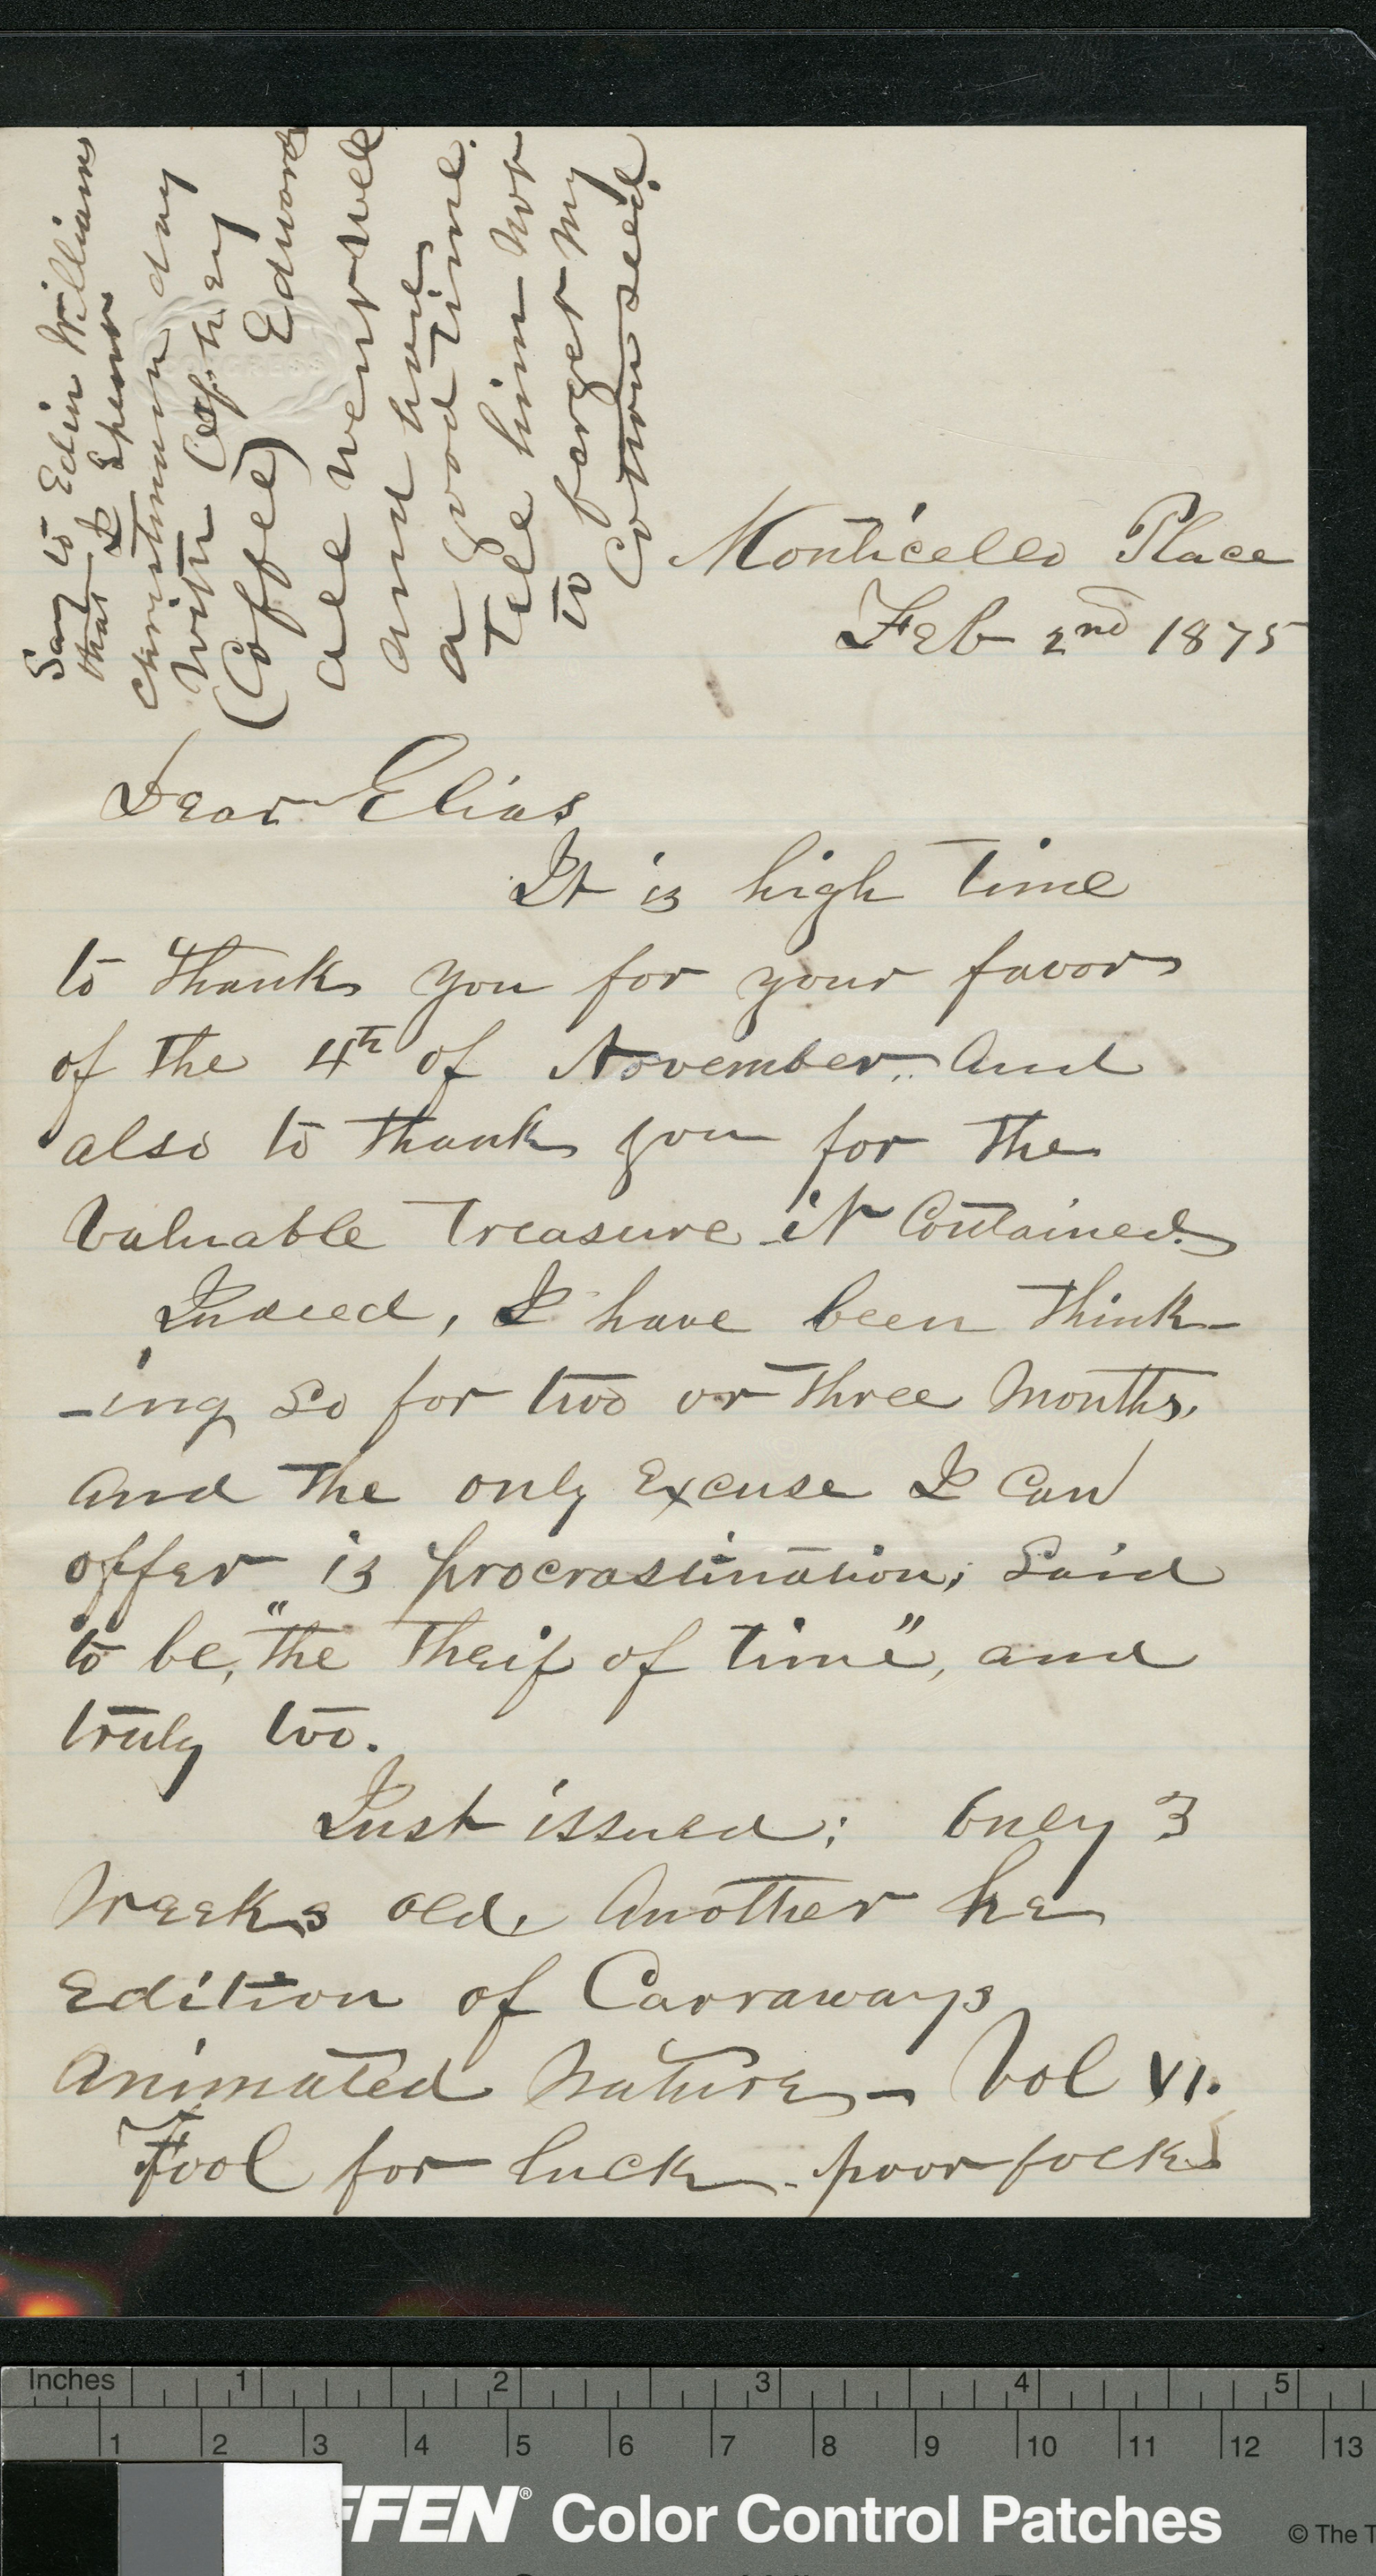 Say to Edin Williams
that I Spent
christmas day
with Cof they
(Coffee) Edward
all went well
and have
a good time.
Tell him not
to forget my
Cotton seed
Monticello Place
Feb 2nd 1875
Dear Elias
It is high time
to thank you for your favor
of the 4th of November. And
also to thank you for the
Valuable Treasure it Contained.
Indeed, I have been think-
-ing so for two or three Months.
And the only Excuse I Can
offer is procrastination; Said
to be, "the Theif of time", and
truly too.
Just issued; Only 3
Weeks old. Another he
Edition of Carraways
Animated Nature - Vol VI.
Fool for luck - poor folks
Inches 1 2 3 4 5
1 2 3 4 5 6 7 8 9 10 11 12 13
FFEN® Color Control Patches © The T